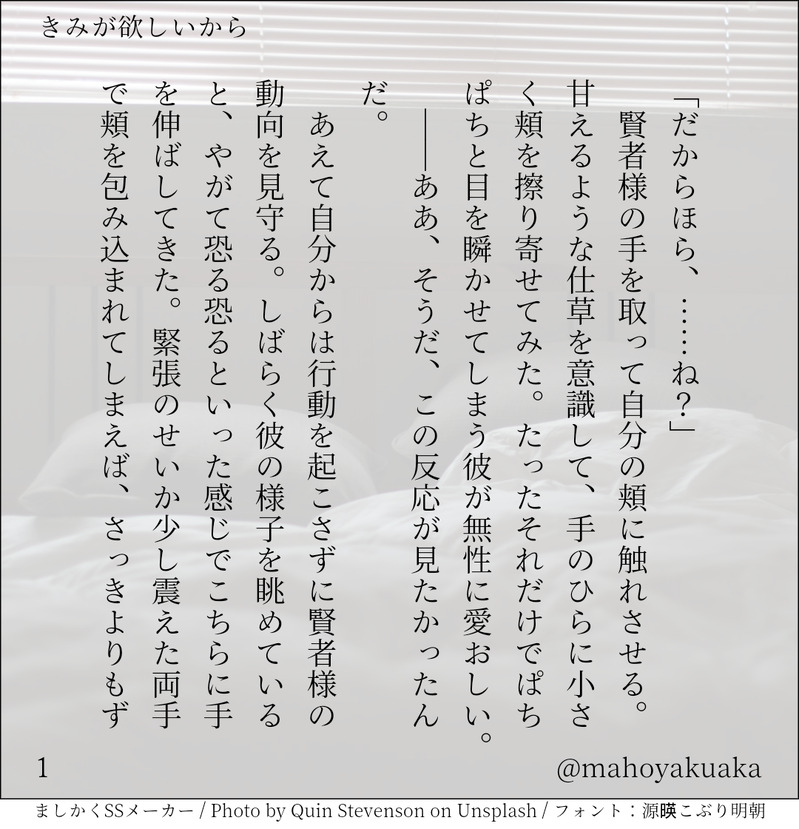 きみが欲しいから
「だからほら、……ね？」
賢者様の手を取って自分の頬に触れさせる。
甘えるような仕草を意識して、手のひらに小さ
く頬を擦り寄せてみた。たったそれだけでぱち
ぱちと目を瞬かせてしまう彼が無性に愛おしい。
――ああ、そうだ、この反応が見たかったん
だ。
あえて自分からは行動を起こさずに賢者様の
動向を見守る。しばらく彼の様子を眺めている
と、やがて恐る恐るといった感じでこちらに手
を伸ばしてきた。緊張のせいか少し震えた両手
で頬を包み込まれてしまえば、さっきよりもず
1
@mahoyakuaka
ましかくSSメーカー / Photo by Quin Stevenson on Unsplash / フォント：源暎こぶり明朝